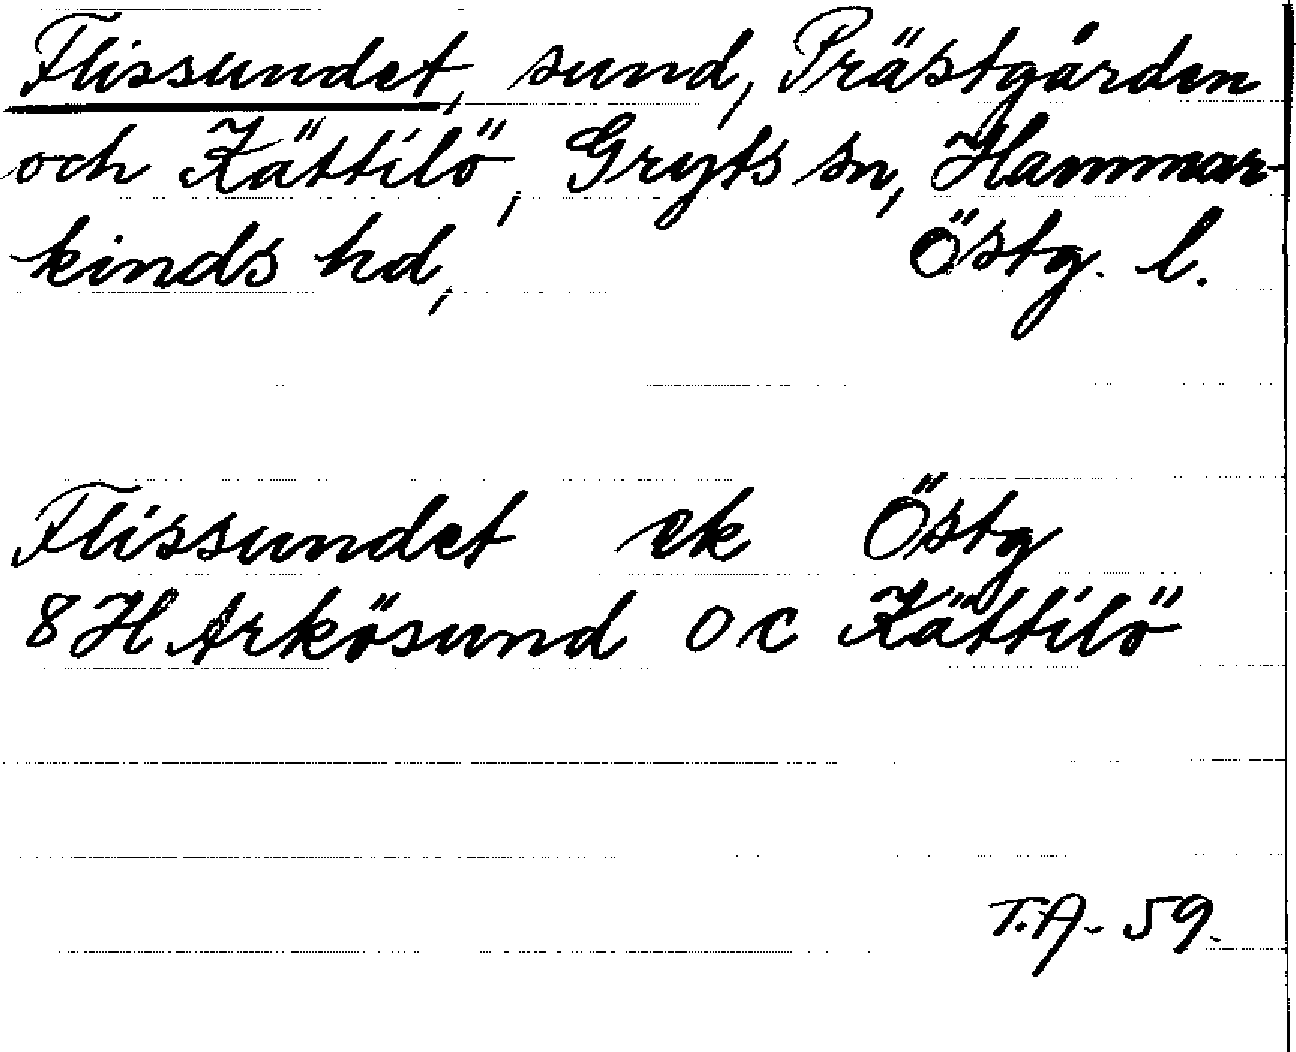 Flissundet, sund, Prästgården
och Kättilö, Gryts sn, Hammar-
kinds hd, Östg. l.
Flissundet ek Östg
8 H Arkösund o c Kättilö
T.A. 59.